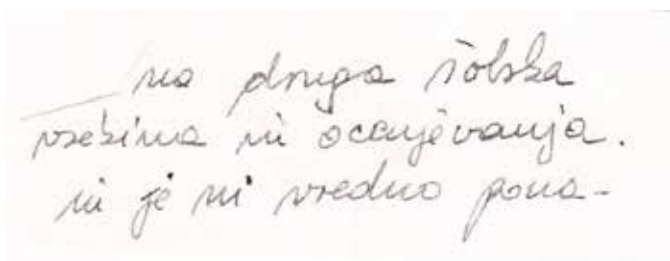 na druga šolska
vsebina ni ocenjevanja.
ni je ni vredno pona-